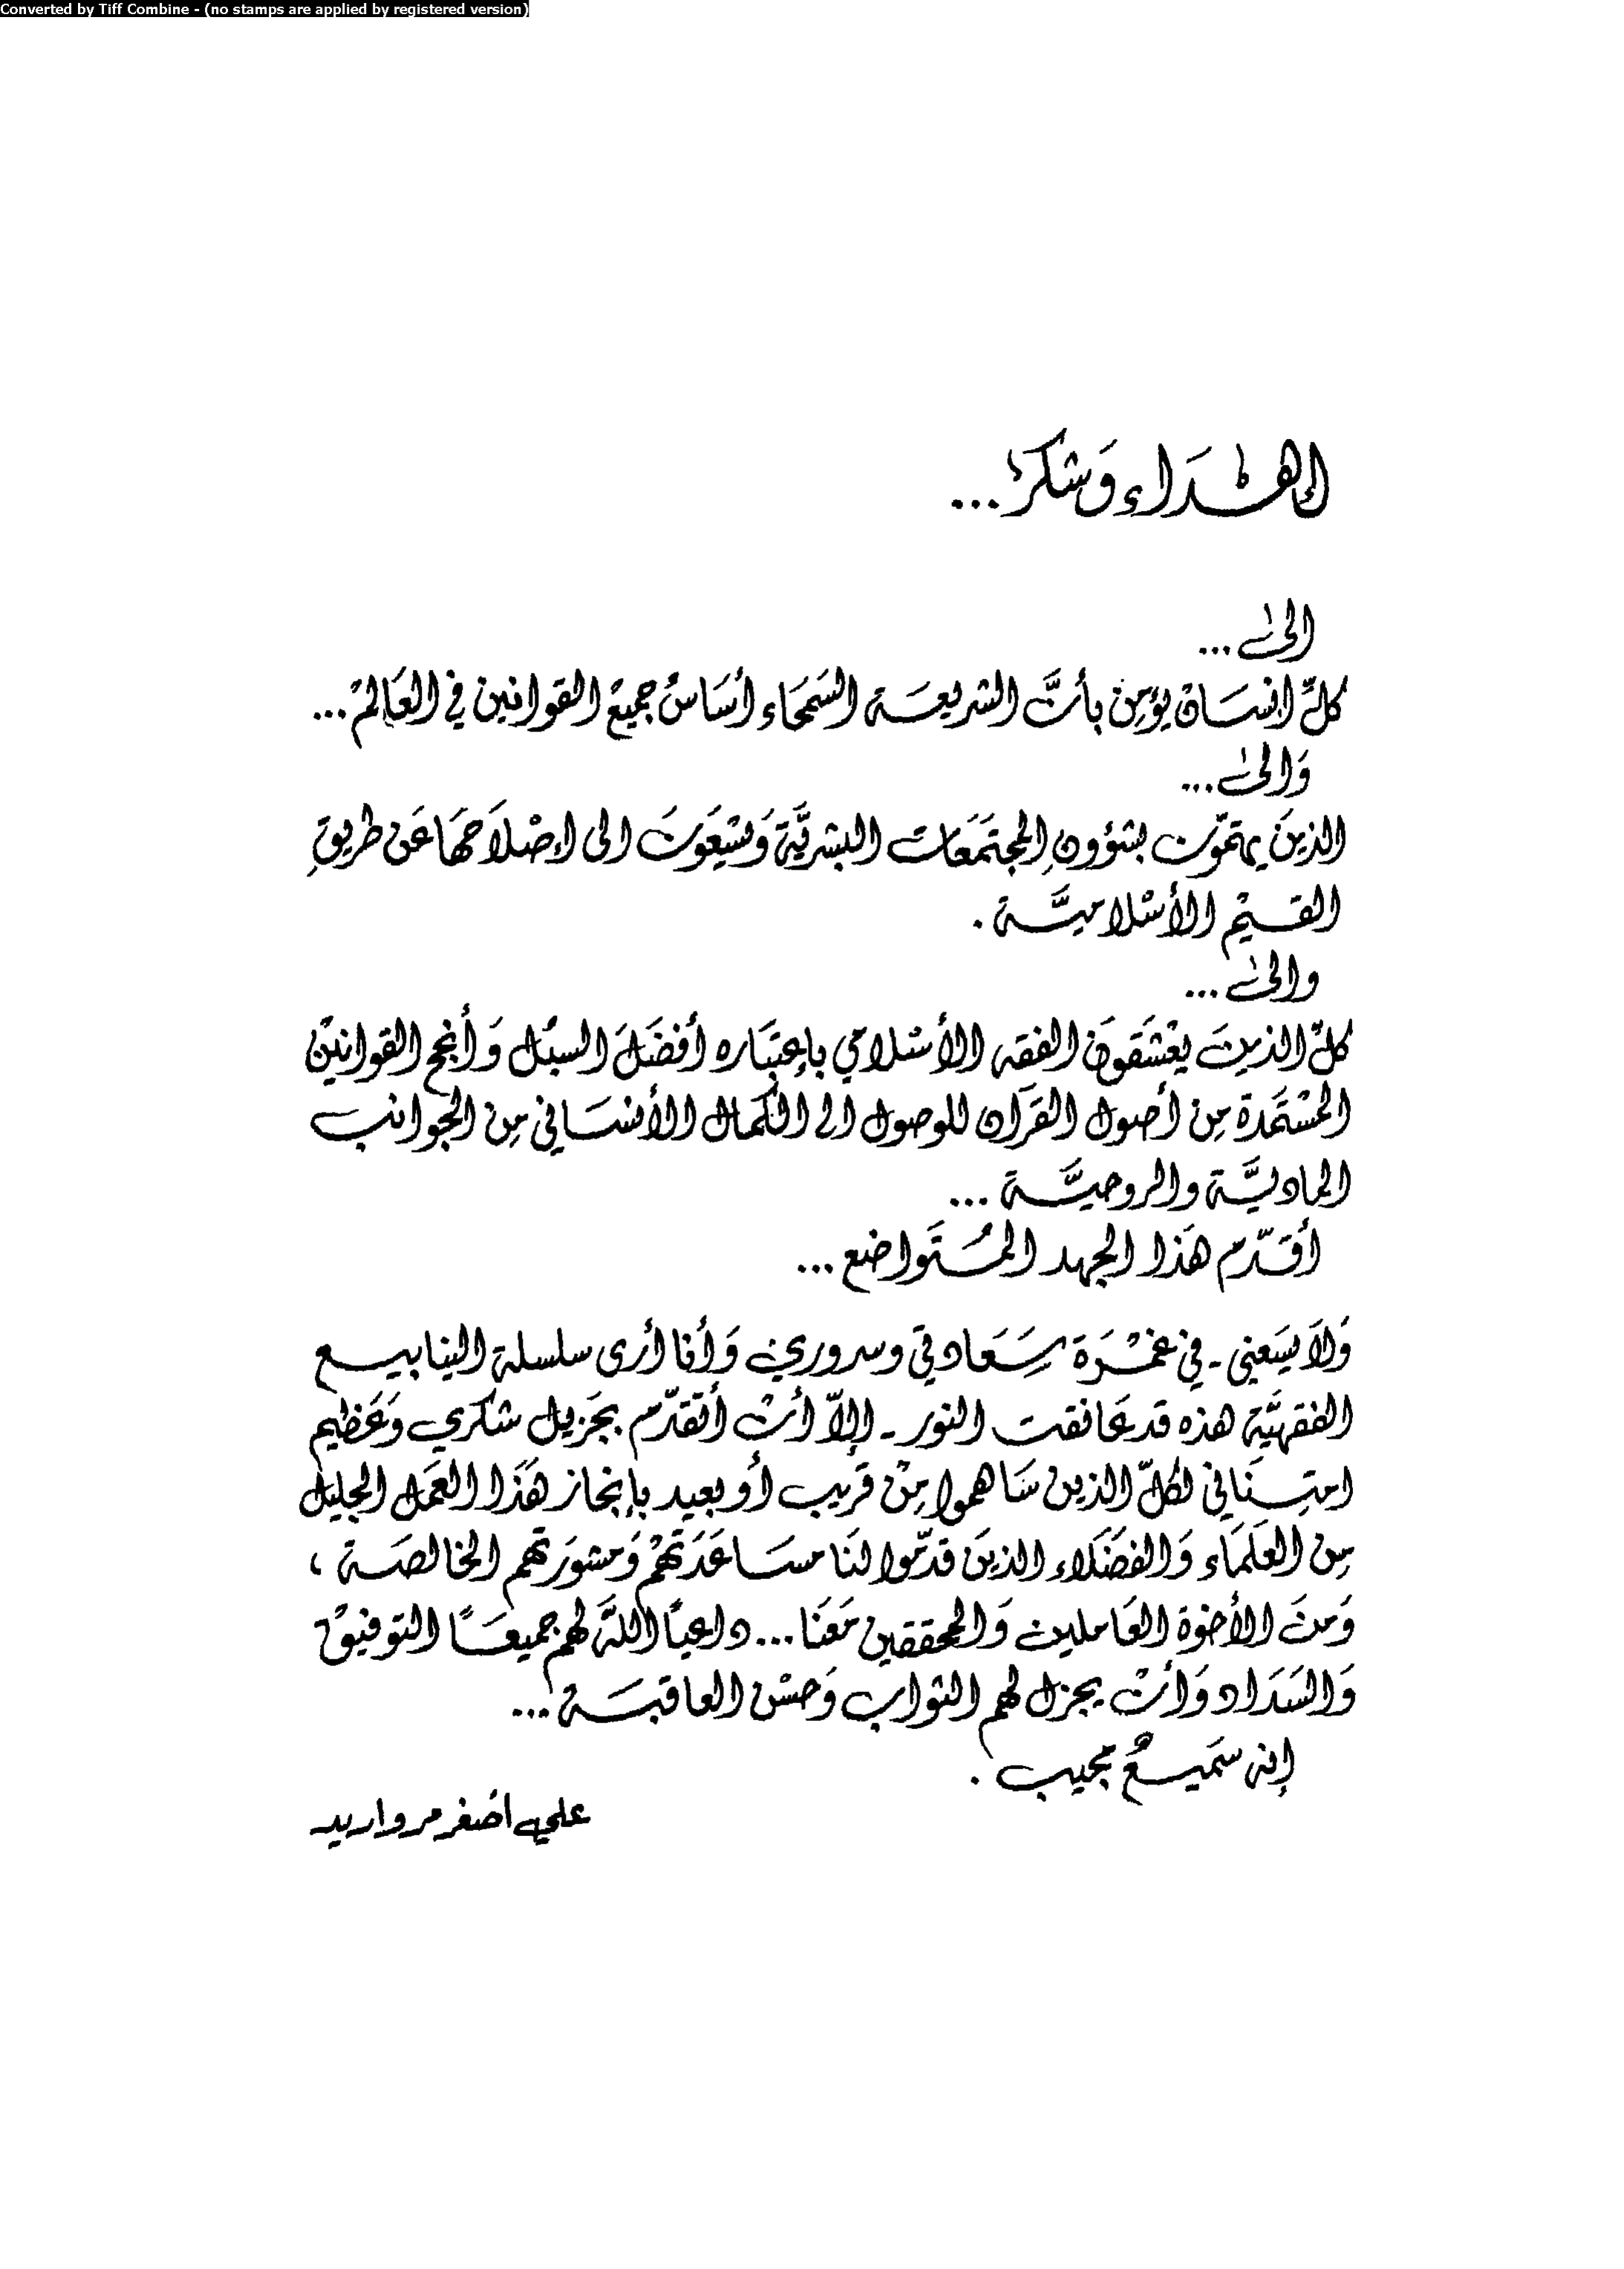 Converted by Tiff Combine - (no stamps are applied by registered version)
إهداء وَشكر...
الىٰ...
كلّ انسَان يؤمِن بأنَّ الشريعَة السَمحَاء أسَاسُ جميعُ القوانين في العَالمْ...
وَالىٰ...
الذينَ يهتمّون بشؤونِ المجتَمَعَات البشريَّة وَيسْعَونَ الى إصْلاَحهَا عَن طريقِ
القيمْ الأسْلاميَّة .
والىٰ...
كلّ الذينَ يعْشَقونَ الفقه الأسْلامي بإعتبَاره أفضَلَ السبُل وَأنجح القوانيْن
المسْتَمدة مِن أصول القرَآن للوصول الى الكمال الأنسَاني مِن الجوانب
الماديَّة والروحيَّة ...
أقَدّم هَذا الجهد المُتَواضع...
وَلاَ يسَعني - في غمْرَة سَعَادتي وسروري وَأنا أرى سلسلة الينابيع
الفقهيَّة هذه قد عَانقت النور - إلاّ أنْ أتقدّم بجَزيل شكري وَعَظيم
امتِنَاني لكلّ الذين سَاهموا مِنْ قريب أو بعيد بإنجاز هَذَا العَمل الجليل
مِن العلَمَاء وَالفضَلاء الذينَ قدّموا لنَا مسَاعَدَتهمْ وَمشورَتهم الخالصَة ،
وَمنَ الأخوة العَاملين وَالمحققين مَعَنا... داعيًا اللهَ لهم جميعًا التوفيقْ
وَالسَدَاد وَأنْ يجزل لهم الثواب وَحسْن العاقبَة ...
إنه سَميعٌ مجيب .
علي اصْغر مرواريد